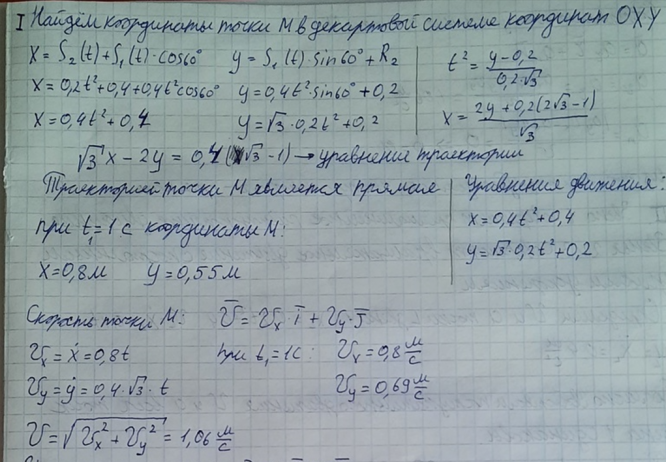 I Найдём координаты точки М в декартовой системе координат OXY
x = S₂(t)+S₁(t)·cos60°
y = S₁(t)·sin60°+R₂
x = 0,2t²+0,4+0,4t²cos60°
y = 0,4t²·sin60°+0,2
x = 0,4t²+0,4
y = √3·0,2t²+0,2
t² = (y-0,2)/(0,2·√3)
x = (2y+0,2(2√3-1))/√3
√3x-2y = 0,4(√3-1) → уравнение траектории
Траекторией точки М является прямая
при t₁=1с координаты М:
x=0,8м y=0,55м
Уравнения движения:
x=0,4t²+0,4
y=√3·0,2t²+0,2
Скорость точки М: V̅ = Vx·i̅ + Vy·j̅
Vx = ẋ = 0,8t при t₁=1с: Vx=0,8 м/с
Vy = ẏ = 0,4·√3·t Vy=0,69 м/с
V = √(Vx²+Vy²) = 1,06 м/с